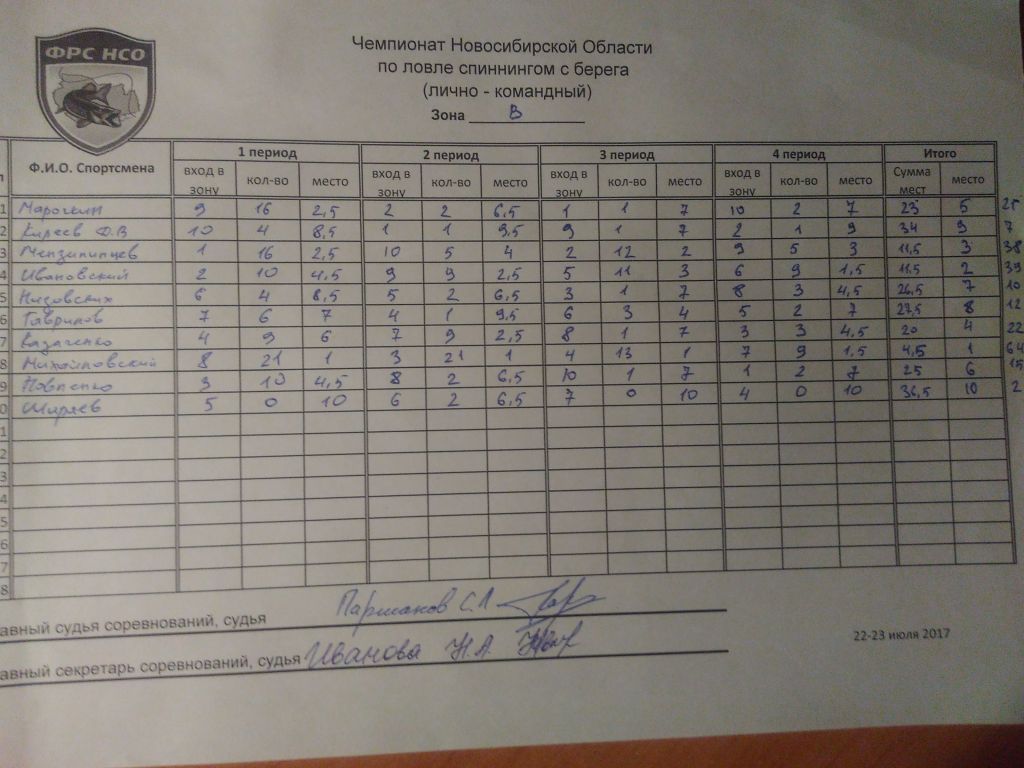 ФРС НСО
Чемпионат Новосибирской Области
по ловле спиннингом с берега
(лично - командный)
Зона В
Ф.И.О. Спортсмена 1 период 2 период 3 период 4 период Итого
вход в зону кол-во место вход в зону кол-во место вход в зону кол-во место вход в зону кол-во место Сумма мест место
1 9 16 2,5 2 2 6,5 1 1 7 10 2 7 23 5
2 Киреев Д.В 10 4 8,5 1 1 9,5 9 1 7 2 1 9 34 9 7
3 1 16 2,5 10 5 4 2 12 2 9 5 3 11,5 3 38
4 Ивановский 2 10 4,5 9 9 2,5 5 11 3 6 9 1,5 11,5 2 39
5 Низовских 6 4 8,5 5 2 6,5 3 1 7 8 3 4,5 26,5 7 10
6 Гаврилов 7 6 7 4 1 9,5 6 3 4 5 2 7 27,5 8 12
7 Казаченко 4 9 6 7 9 2,5 8 1 7 3 3 4,5 20 4 22
8 Михайловский 8 21 1 3 21 1 4 13 1 7 9 1,5 4,5 1 64
9 3 10 4,5 8 2 6,5 10 1 7 1 2 7 25 6 15
0 Ширяев 5 0 10 6 2 6,5 7 0 10 4 0 10 36,5 10 2
1
2
3
4
5
6
7
8
авный судья соревнований, судья Паршаков С.Л
авный секретарь соревнований, судья Иванова Н.А
22-23 июля 2017